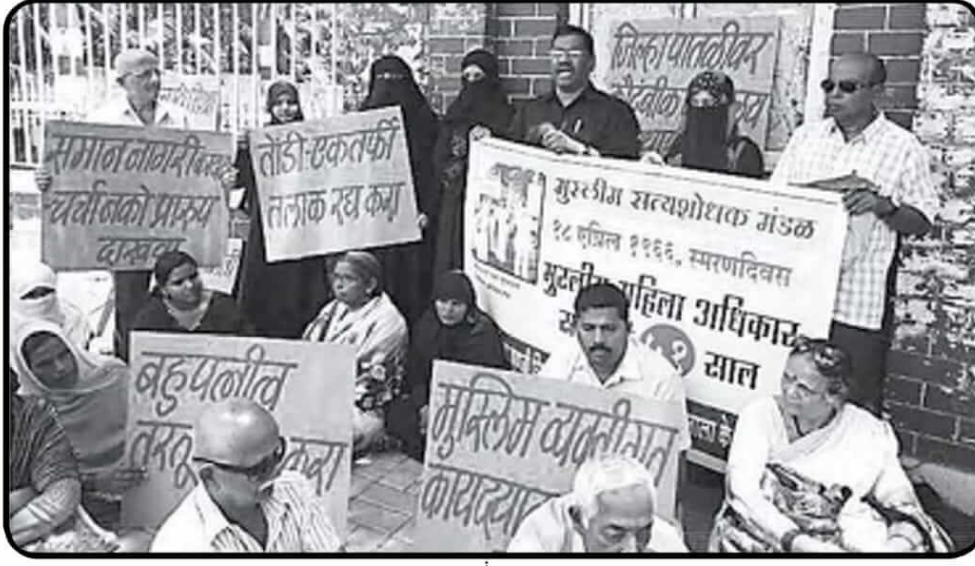 समान नागरी
चर्चा नको प्रारूप
दाखवा
तोंडी-एकतर्फी
तलाक रद्द करा
जिल्हा पातळीवर
मुस्लीम सत्यशोधक मंडळ
१८ एप्रिल १९६६, स्मरणदिवस
मुस्लीम महिला अधिकार
साल
बहुपत्नीत्व
करा
मुस्लिम व्यक्तीगत
कायद्या